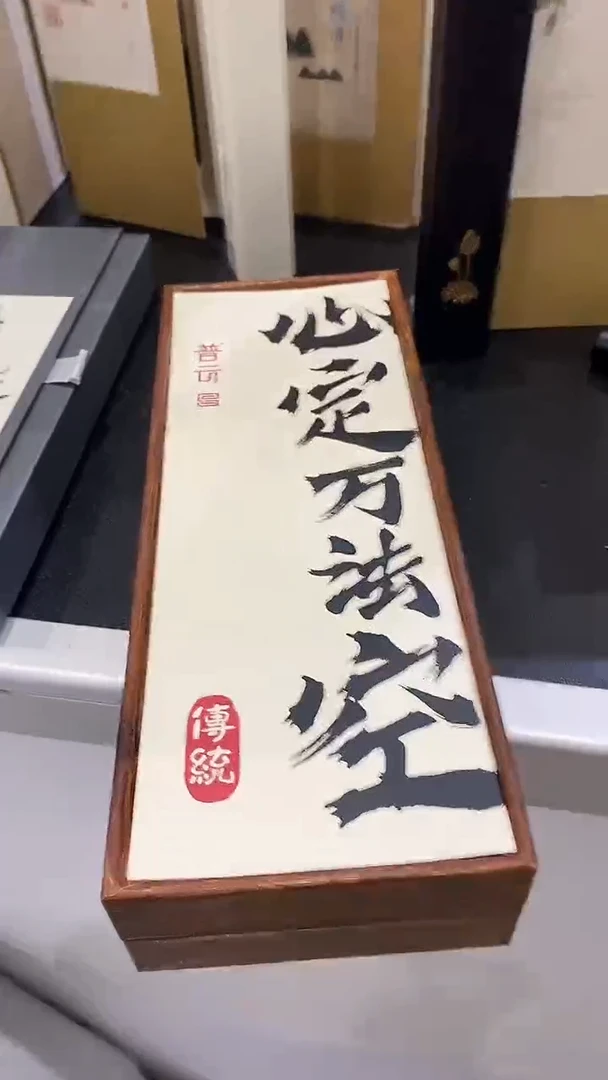 心定万法空
普云
傳統